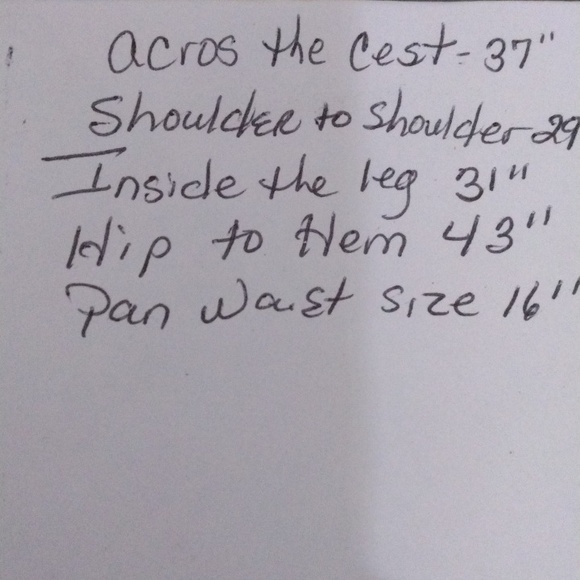 Acros the Cest - 37"
Shoulder to Shoulder 29
Inside the leg 31"
Hip to Hem 43"
Pan Waist Size 16"